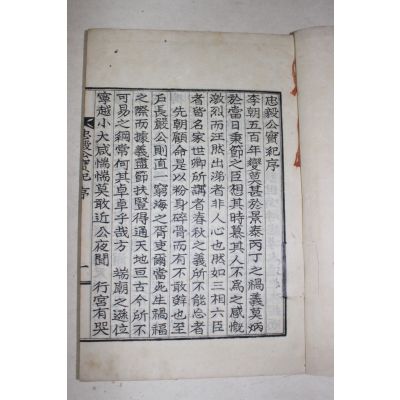 忠毅公實紀序
李朝五百年變莫甚於景泰丙丁之禍義莫炳
於當日秉節之臣想其時慕其人不爲之感慨
激烈而汪然出涕者非人心也然如三相六臣
者皆名家世卿所謂者春秋之義所不能忘者
先朝顧命是以粉身碎骨而有不敢辭也至
戶長嚴公則直一窮海之胥吏爾當死生禍福
之際而據義盡節扶豎得通天地亘古今所不
可易之綱常何其卓卓乎哉方 端廟之遜位
寧越小大咸惴惴莫敢近公夜聞 行宮有哭
忠毅公實紀 序 一